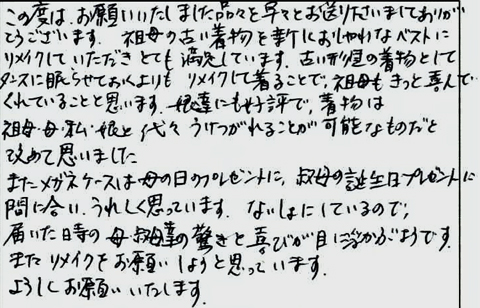 この度は、お願いいたしました品々を早々とお送り下さいましてありが
とうございます。祖母の古い着物を素敵におしゃれなベストに
リメイクしていただきとても満足しています。古い形の着物として
タンスに眠らせておくよりも リメイクして着ることで、祖母も きっと喜んで
くれていることと思います。娘達にも好評で、着物は
祖母・母・私・娘と 代々 うけつがれることが 可能なものだと
改めて思いました
またメガネケースは母の日のプレゼントに、叔母の誕生日プレゼントに
間に合い、うれしく思っています。ないしょにしているので、
届いた日時の 母・叔母の驚きと喜びが目に浮かぶようです。
またリメイクをお願いしようと思っています。
よろしくお願いいたします。